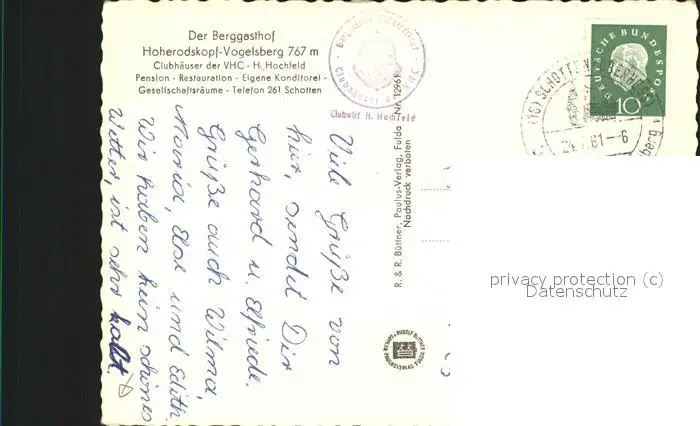 Der Berggasthof
Hoherodskopf-Vogelsberg 767 m
Clubhäuser der VHC - H. Hochfeld
Pension - Restauration - Eigene Konditorei -
Gesellschaftsräume - Telefon 261 Schotten
Clubwirt H. Hochfeld
Viele Grüße von
hier, sendet Dir
Gerhard u. Elfriede.
Grüße auch Wilma,
Maria, Else und Edith.
Wir haben kein schönes
Wetter, ist sehr kallt.
R. & R. Büttner, Paulus-Verlag, Fulda Nr. 1296
Nachdruck verboten
DEUTSCHE BUNDESPOST
10
(16) SCHOTTEN
61-6
privacy protection (c)
Datenschutz